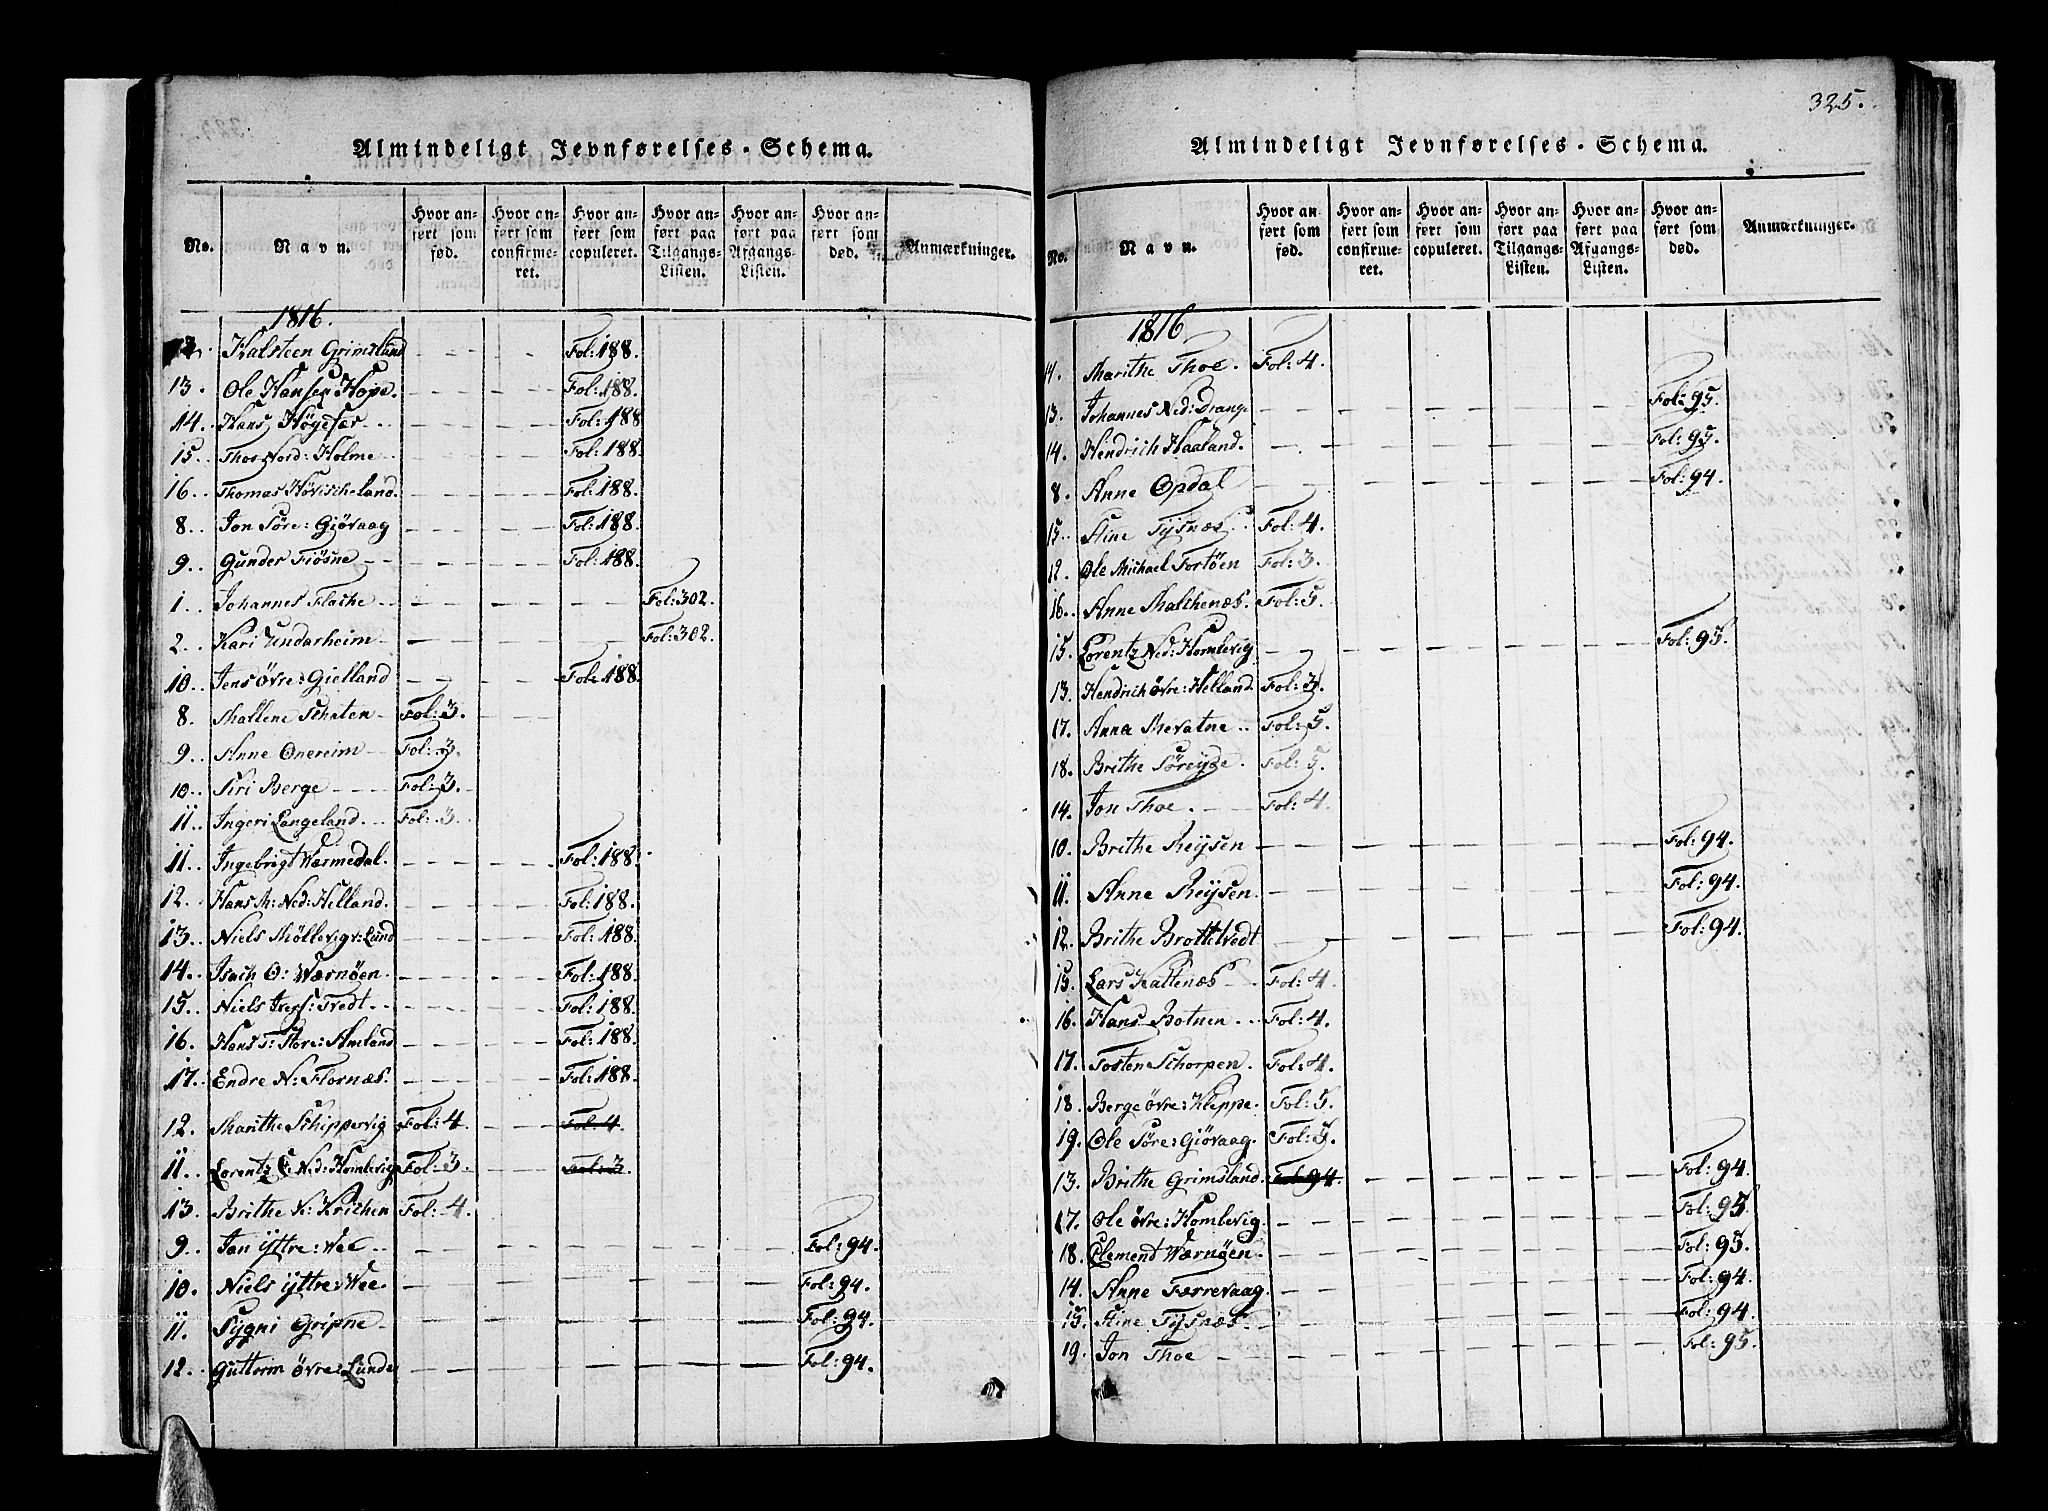 325.
Almindeligt Jevnførelses-Schema.
No. Navn. Hvor anført som fød. Hvor anført som confirmeret. Hvor anført som copuleret. Hvor anført paa Tilgangs-Listen. Hvor anført paa Afgangs-Listen. Hvor anført som død. Anmærkninger.
1816.
12. Halsteen Grimsland Fol: 188.
13. Ole Hansen Hope. Fol: 188.
14. Hans Högesær Fol: 188
15. Thor Nord: Holme Fol: 188.
16. Thomas Hövischeland. Fol: 188.
8. Jon Söre: Giövaag Fol: 188.
9. Gunder Fiösne Fol: 188.
1. Johannes Flache Fol: 302.
2. Kari Undarheim Fol: 302.
10. Jens övre: Gielland Fol: 188.
8. Mallene Schaten Fol: 3.
9. Anne Onereim Fol: 3.
10. Siri Berge Fol: 3.
11. Ingeri Langeland Fol: 3.
11. Ingebrigt Wærmedal. Fol: 188.
12. Hans M: Ned: Helland. Fol: 188.
13. Niels Möllevig v: Lund Fol: 188.
14. Isach O: Wærnöen. Fol: 188.
15. Niels Ivers: Tvedt Fol: 188.
16. Hans T: Store: Amland Fol: 188.
17. Endre N: Flornæs. Fol: 188.
12. Marithe Schippervig Fol: 4 Fol: 4.
11. Lorentz C: Ned: Homlevig Fol: 3 Fol: 3
13. Brithe K: Krichen Fol: 4.
9. Jan ÿttre: Wee Fol: 94.
10. Niels ÿttre: Wee. Fol: 94.
11. Sygni Gripne Fol: 94.
12. Guttorm övre: Lunde Fol: 94.
Almindeligt Jevnførelses-Schema.
No. Navn. Hvor anført som fød. Hvor anført som confirmeret. Hvor anført som copuleret. Hvor anført paa Tilgangs-Listen. Hvor anført paa Afgangs-Listen. Hvor anført som død. Anmærkninger.
1816
14. Marithe Thoe. Fol: 4.
13. Johannes Ned: Drange Fol: 95.
14. Hendrich Haaland. Fol: 95.
8. Anne Opdal Fol: 94.
15. Stine Tÿsnæs. Fol: 4.
12. Ole Michael Fortöen Fol: 3.
16. Anne Malchenæs. Fol: 5.
15. Lorentz Ned: Homlevig Fol: 95.
13. Hendrich övre: Helland. Fol: 3.
17. Anna Mevatne Fol: 5.
18. Brithe Söreyde. Fol: 5.
14. Jon Thoe. Fol: 4
10. Brithe Reÿsen Fol: 94.
11. Anne Reÿsen. Fol: 94.
12. Brithe Brottetvedt Fol: 94.
15. Lars Kaltenæs Fol: 4.
16. Hans Botnen Fol: 4.
17. Tosten Schorpen. Fol: 4.
18. Berge övre: Kleppe. Fol: 5.
19. Ole Söre: Giövaag. Fol: 5.
13. Brithe Grimsland. Fol: 94. Fol: 94.
17. Ole övre: Homlevig. Fol: 95.
18. Clement Wærnöen. Fol: 95.
14. Anne Færrevaag. Fol: 94.
15. Stine Tÿsnæs. Fol: 94.
19. Jon Thoe Fol: 95.